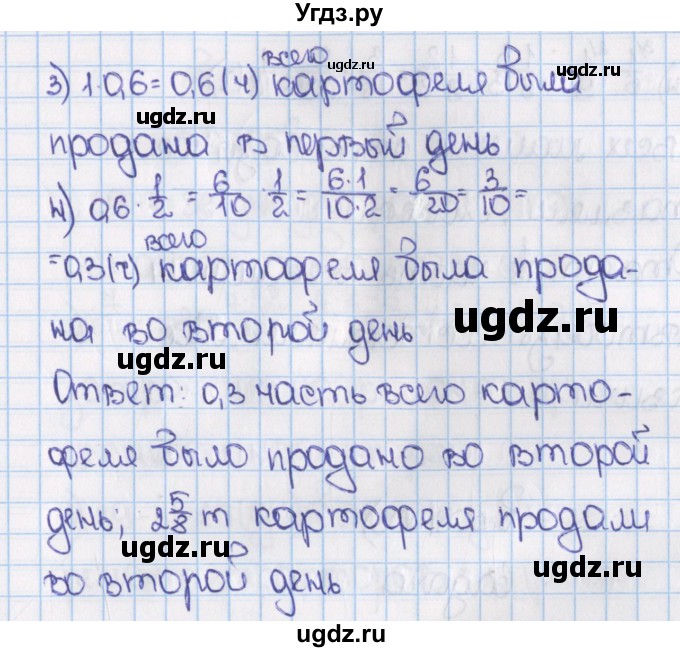 Угдз.ру
всего
3) 1·0,6=0,6(ч) картофеля было
продано в первый день
4) 0,6·1/2=6/10·1/2=6·1/10·2=6/20=3/10=
всего
=0,3(ч) картофеля была прода-
на во второй день
Ответ: 0,3 часть всего карто-
феля было продано во второй
день; 2 5/8 т картофеля продали
во второй день
ugdz.ru
ugdz.ru
ugdz.ru
ugdz.ru
ugdz.ru
ugdz.ru
ugdz.ru
ugdz.ru
ugdz.ru
ugdz.ru
ugdz.ru